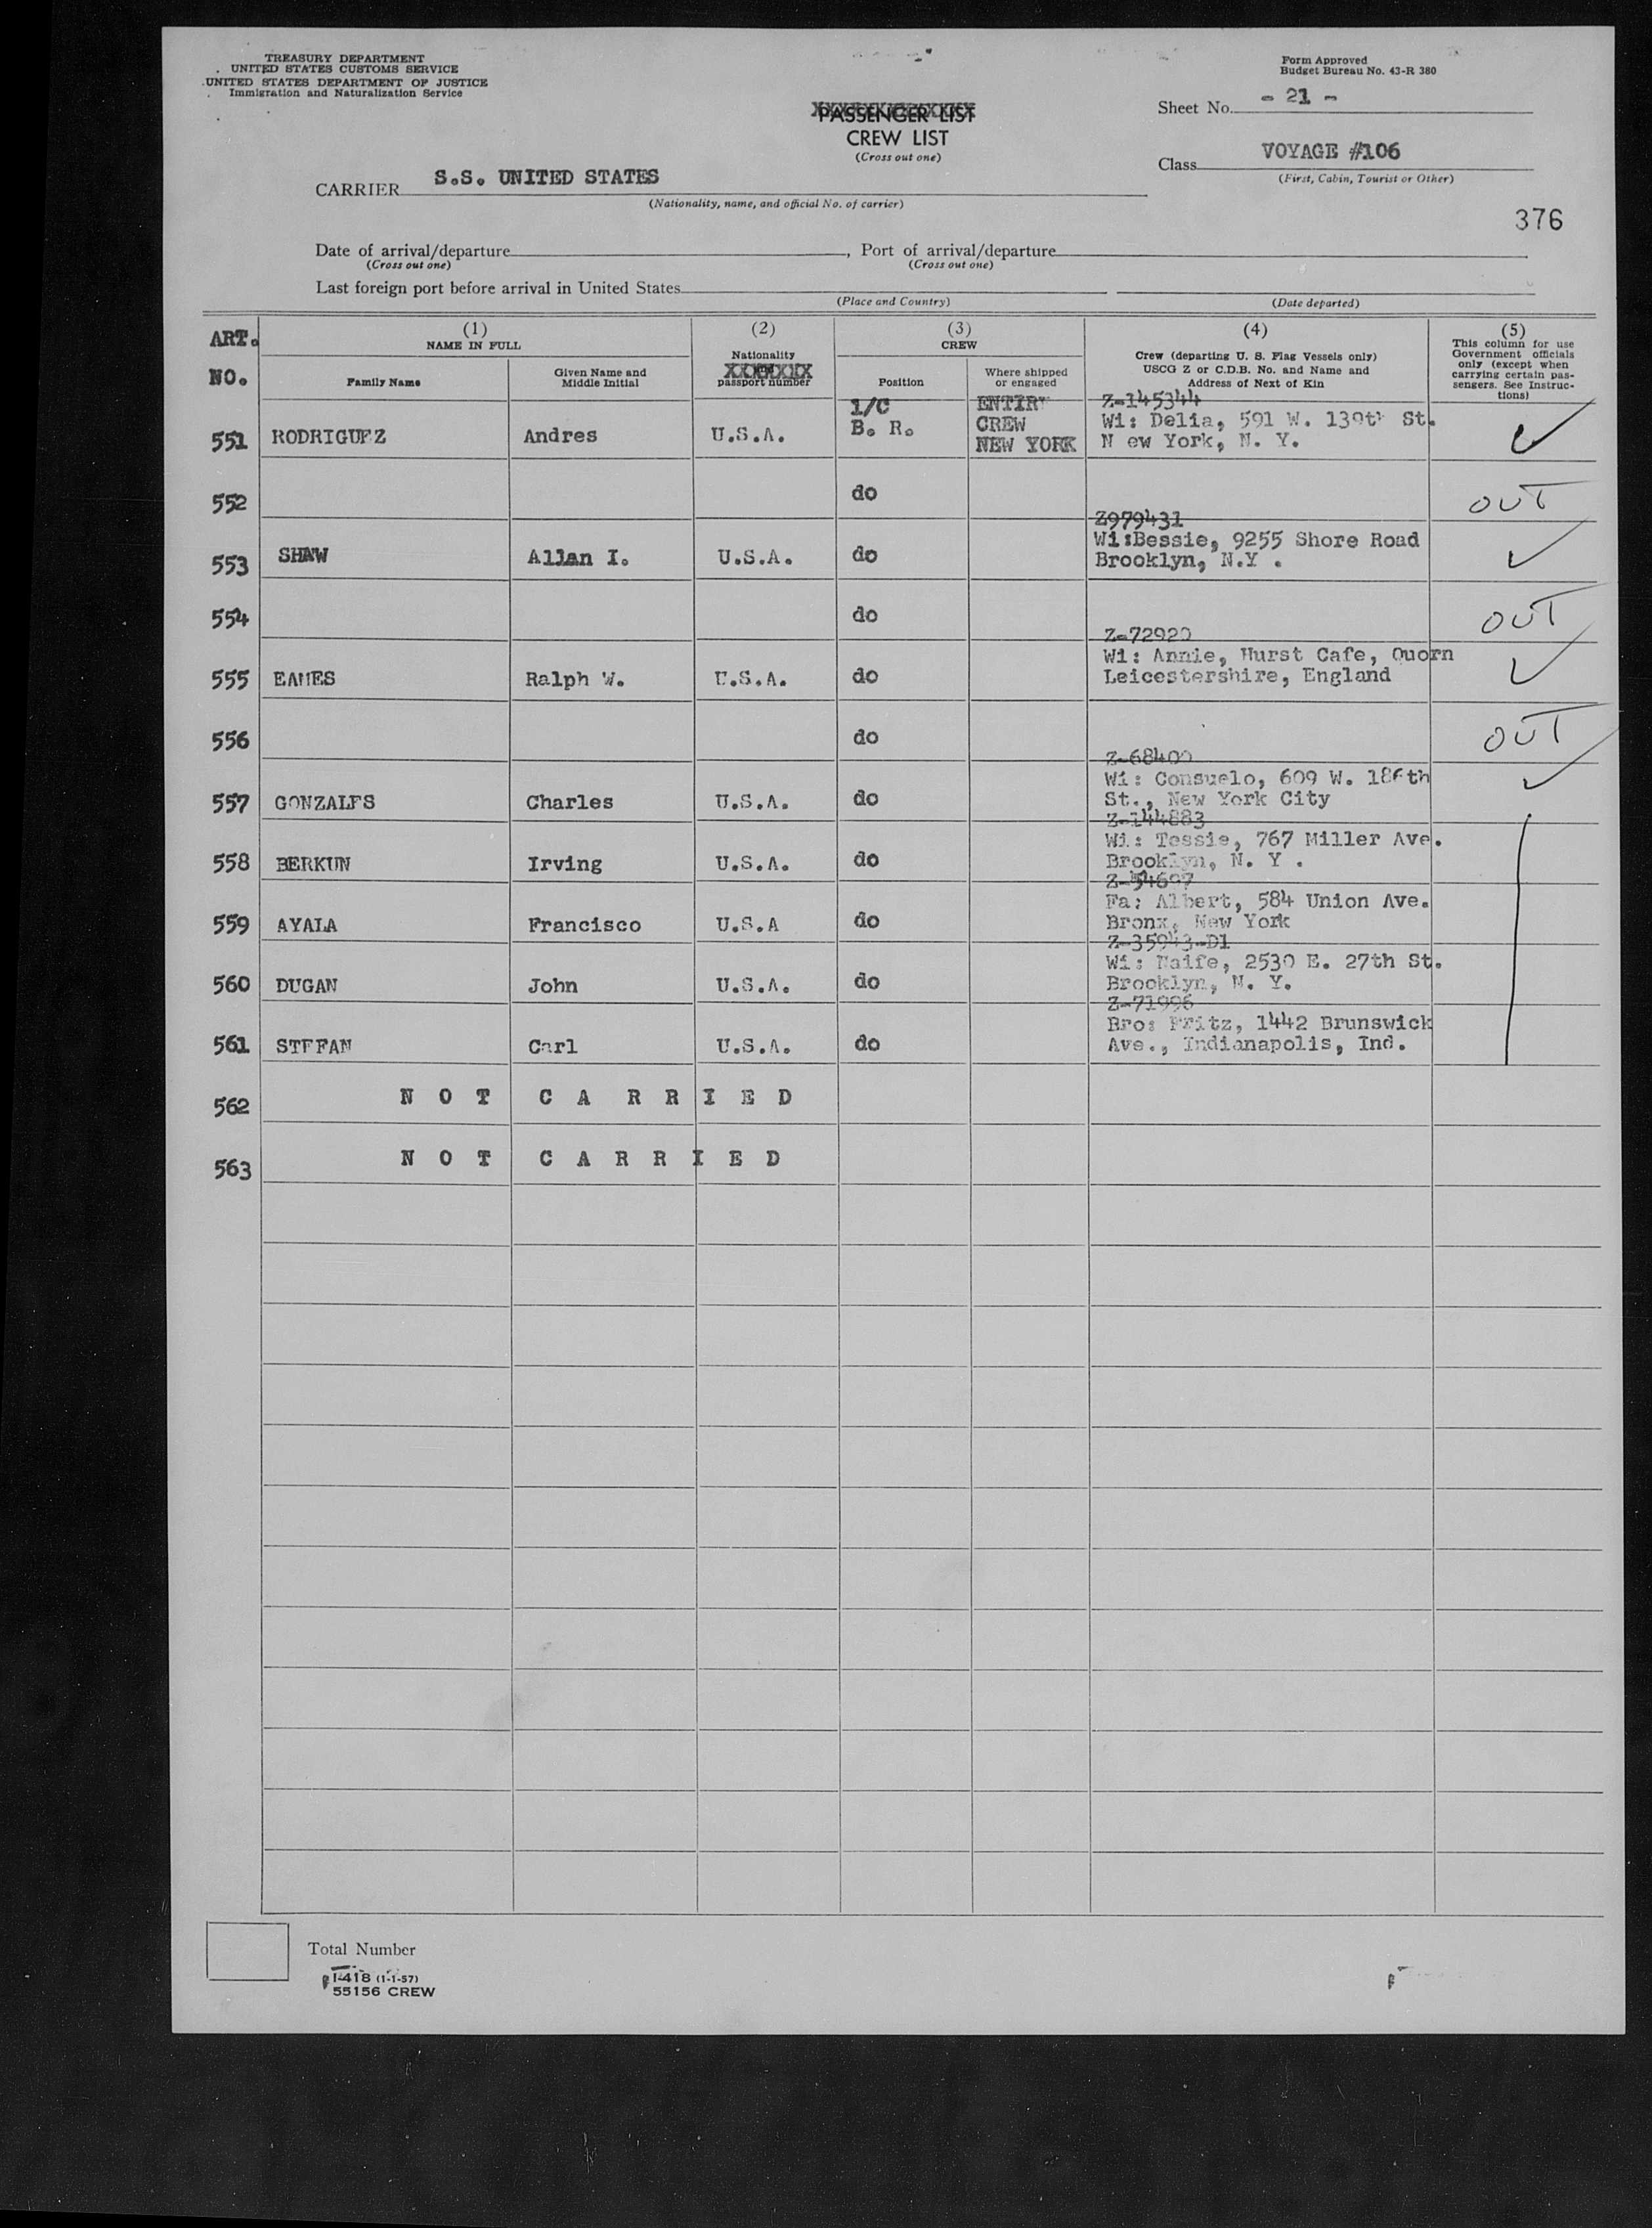 TREASURY DEPARTMENT
UNITED STATES CUSTOMS SERVICE
UNITED STATES DEPARTMENT OF JUSTICE
Immigration and Naturalization Service
Form Approved
Budget Bureau No. 43-R 380
PASSENGER LIST
CREW LIST
(Cross out one)
Sheet No. - 21 -
Class VOYAGE #106
(First, Cabin, Tourist or Other)
CARRIER S.S. UNITED STATES
(Nationality, name, and official No. of carrier)
376
Date of arrival/departure , Port of arrival/departure
(Cross out one) (Cross out one)
Last foreign port before arrival in United States
(Place and Country) (Date departed)
ART. NO.
(1) NAME IN FULL
Family Name
Given Name and Middle Initial
(2) Nationality and passport number
(3) CREW
Position
Where shipped or engaged
(4) Crew (departing U. S. Flag Vessels only)
USCG Z or C.D.B. No. and Name and
Address of Next of Kin
(5) This column for use
Government officials
only (except when
carrying certain pas-
sengers. See Instruc-
tions)
551 RODRIGUEZ Andres U.S.A. 1/C B. R. ENTIRE CREW NEW YORK Z-145344
Wi: Delia, 591 W. 139th St.
N ew York, N. Y.
552 do OUT
553 SHAW Allan I. U.S.A. do Z979431
Wi:Bessie, 9255 Shore Road
Brooklyn, N.Y .
554 do OUT
555 EAMES Ralph W. U.S.A. do Z-72920
Wi: Annie, Hurst Cafe, Quorn
Leicestershire, England
556 do OUT
557 GONZALES Charles U.S.A. do Z-68400
Wi: Consuelo, 609 W. 186th
St., New York City
558 BERKUN Irving U.S.A. do Z-144883
Wi: Tessie, 767 Miller Ave.
Brooklyn, N. Y .
559 AYALA Francisco U.S.A do Z-54697
Fa: Albert, 584 Union Ave.
Bronx, New York
560 DUGAN John U.S.A. do Z-35943-D1
Wi: Naife, 2530 E. 27th St.
Brooklyn, N. Y.
561 STEFAN Carl U.S.A. do Z-71996
Bro: Fritz, 1442 Brunswick
Ave., Indianapolis, Ind.
562 N O T C A R R I E D
563 N O T C A R R I E D
Total Number
I-418 (1-1-57)
55156 CREW